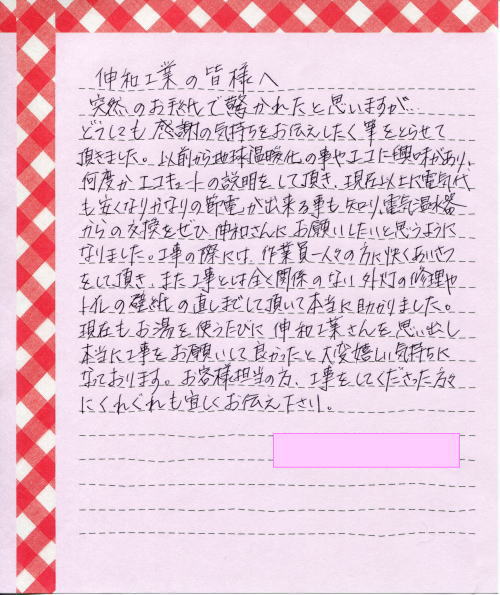 伸和工業の皆様へ
突然のお手紙で驚かれたと思いますが…
どうしても感謝の気持ちをお伝えしたく筆をとらせて
頂きました。以前から地球温暖化の事やエコに興味があり、
何度かエコキュートの説明をして頂き、現在以上に電気代
も安くなりかなりの節電が出来る事も知り、電気温水器
からの交換をぜひ伸和さんにお願いしたいと思うように
なりました。工事の際には、作業員一人々の方に快くあいさつ
をして頂き、また工事とは全く関係のない外灯の修理や
トイレの壁紙の直しまでして頂いて本当に助かりました。
現在もお湯を使うたびに伸和工業さんを思い出し
本当に工事をお願いして良かったと大変嬉しい気持ちに
なっております。お客様担当の方、工事をしてくださった方々
にくれぐれも宜しくお伝え下さい。